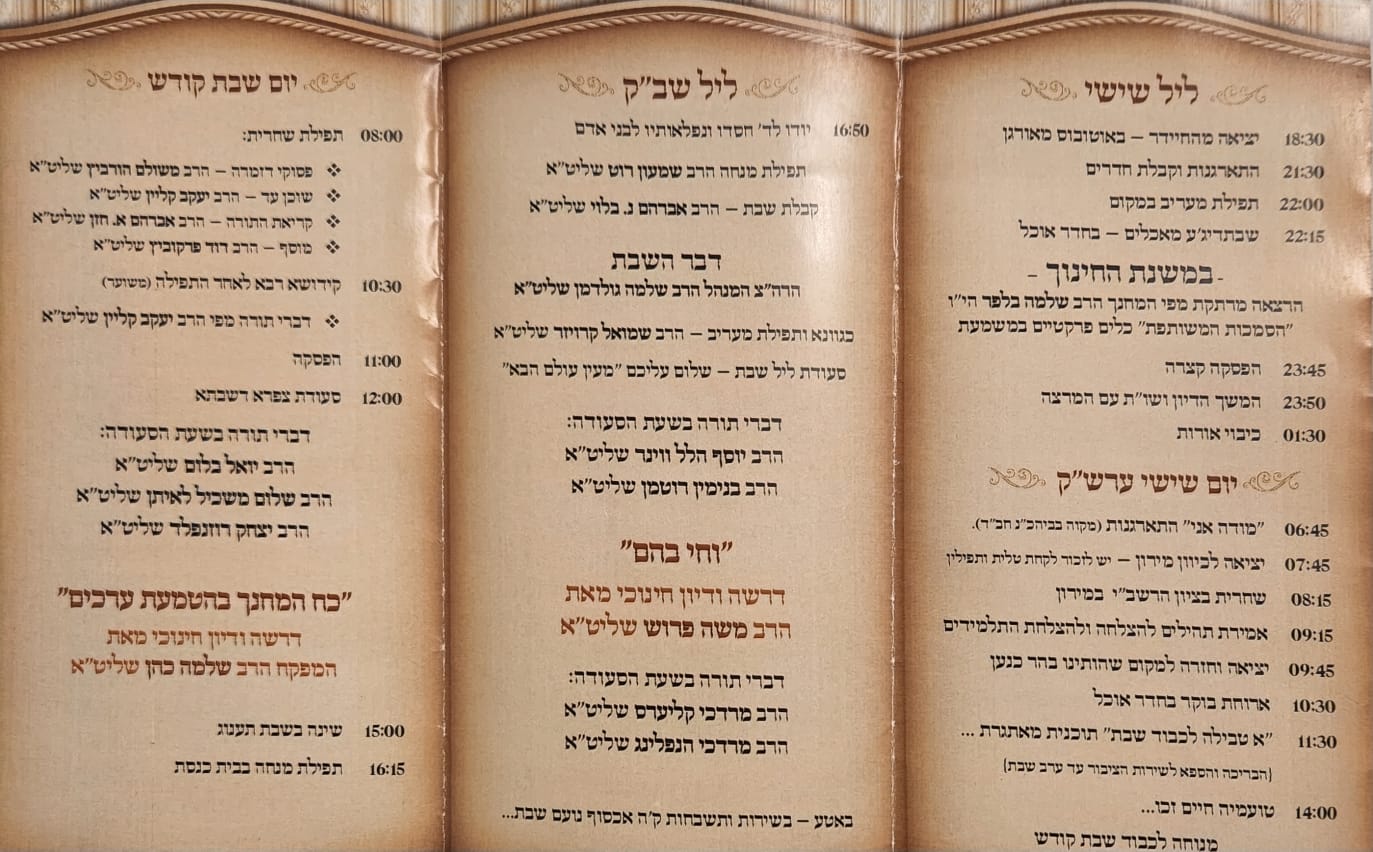 ליל שישי
18:30 יציאה מהחיידר – באוטובוס מאורגן
21:30 התארגנות וקבלת חדרים
22:00 תפילת מעריב במקום
22:15 שבתדיג'ע מאכלים – בחדר אוכל
- במשנת החינוך -
הרצאה מרתקת מפי המחנך הרב שלמה בלפר הי"ו
"הסמכות המשותפת" כלים פרקטיים במשמעת
23:45 הפסקה קצרה
23:50 המשך הדיון ושו"ת עם המרצה
01:30 כיבוי אורות
יום שישי ערש"ק
06:45 "מודה אני" התארגנות (מקוה בביהכ"נ חב"ד).
07:45 יציאה לכיוון מירון – יש לזכור לקחת טלית ותפילין
08:15 שחרית בציון הרשב"י במירון
09:15 אמירת תהילים להצלחה ולהצלחת התלמידים
09:45 יציאה וחזרה למקום שהותינו בהר כנען
10:30 ארוחת בוקר בחדר אוכל
11:30 "א טבילה לכבוד שבת" תוכנית מאתגרת ...
(הבריכה והספא לשירות הציבור עד ערב שבת)
14:00 טועמיה חיים זכו...
מנוחה לכבוד שבת קודש
ליל שב"ק
16:50 יודו לד' חסדו ונפלאותיו לבני אדם
תפילת מנחה הרב שמעון רוט שליט"א
קבלת שבת – הרב אברהם נ. בלוי שליט"א
דבר השבת
הרה"צ המנהל הרב שלמה גולדמן שליט"א
כגוונא ותפילת מעריב – הרב שמואל קרויזר שליט"א
סעודת ליל שבת – שלום עליכם "מעין עולם הבא"
דברי תורה בשעת הסעודה:
הרב יוסף הלל ווינר שליט"א
הרב בנימין רוטמן שליט"א
"וחי בהם"
דרשה ודיון חינוכי מאת
הרב משה פרוש שליט"א
דברי תורה בשעת הסעודה:
הרב מרדכי קליערס שליט"א
הרב מרדכי הנפלינג שליט"א
באטע – בשירות ותשבחות ק'ה אכסוף נועם שבת...
יום שבת קודש
08:00 תפילת שחרית:
❖ פסוקי דזמרה – הרב משולם הורביץ שליט"א
❖ שוכן עד – הרב יעקב קליין שליט"א
❖ קריאת התורה – הרב אברהם א. חזן שליט"א
❖ מוסף – הרב דוד פרקוביץ שליט"א
10:30 קידושא רבא לאחר התפילה (משוער)
❖ דברי תורה מפי הרב יעקב קליין שליט"א
11:00 הפסקה
12:00 סעודת צפרא דשבתא
דברי תורה בשעת הסעודה:
הרב יואל בלום שליט"א
הרב שלום משכיל לאיתן שליט"א
הרב יצחק רוזנפלד שליט"א
"כח המחנך בהטמעת ערכים"
דרשה ודיון חינוכי מאת
המפקח הרב שלמה כהן שליט"א
15:00 שינה בשבת תענוג
16:15 תפילת מנחה בבית כנסת